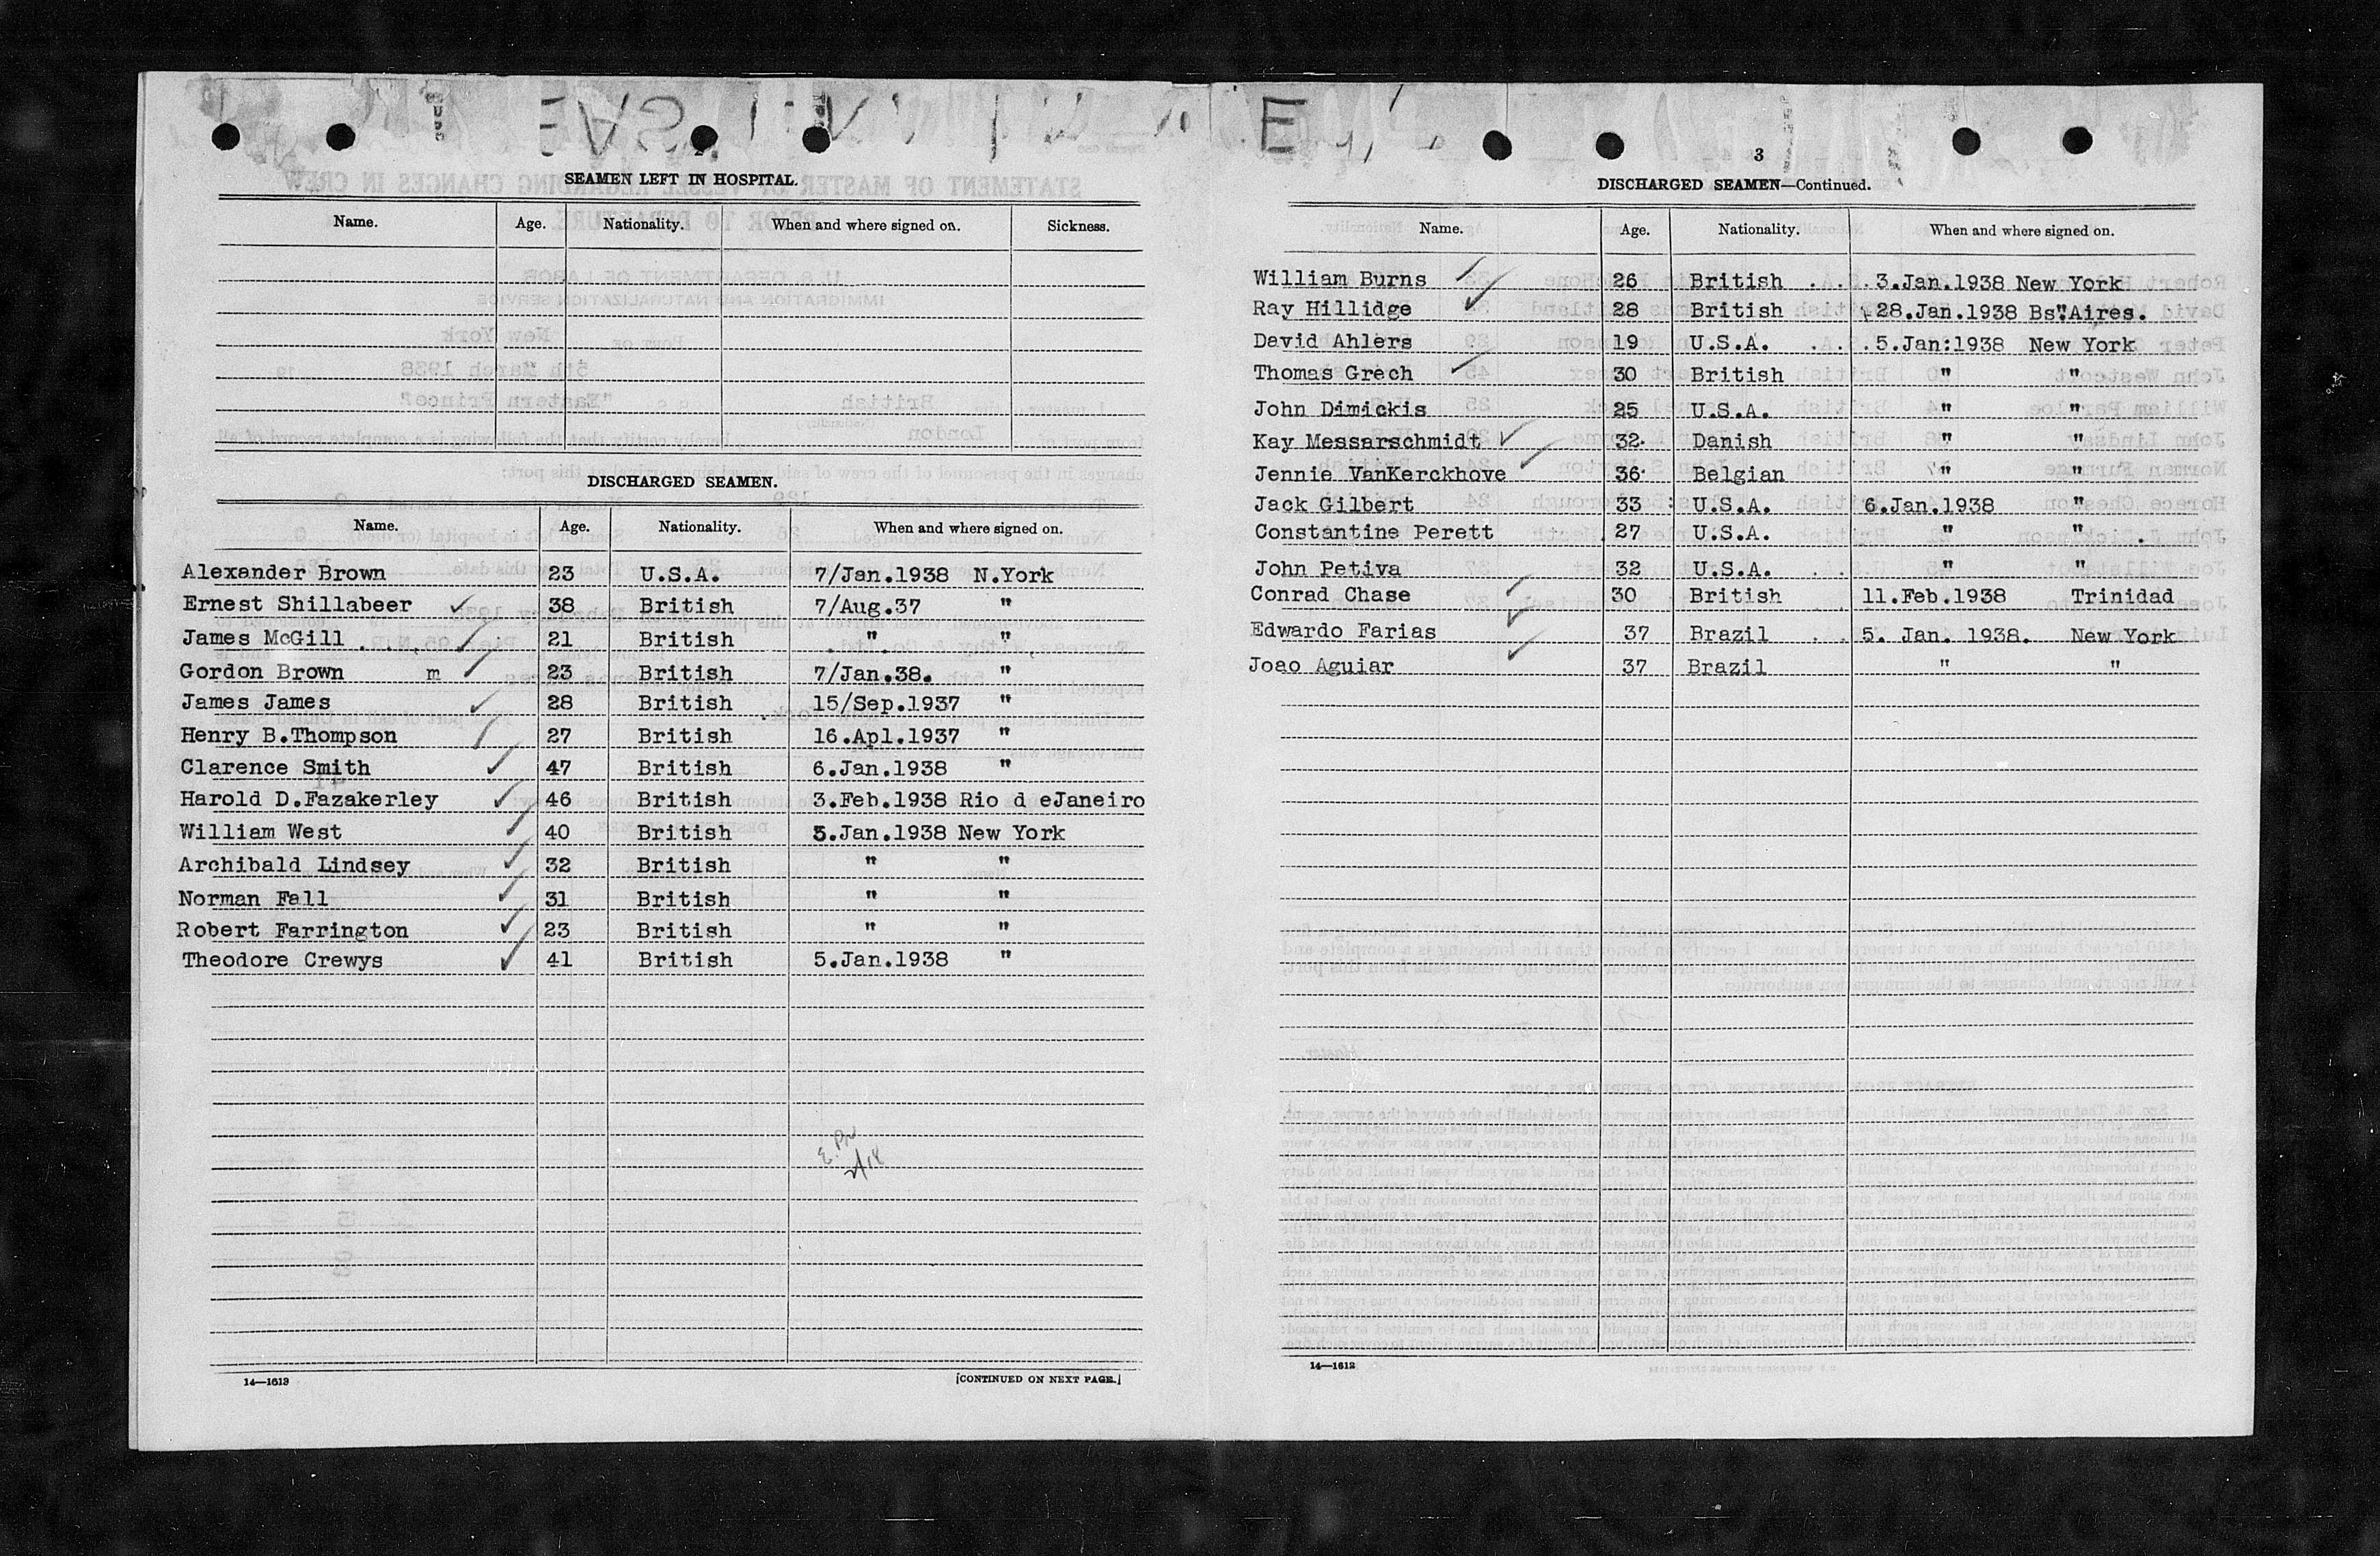 SEAMEN LEFT IN HOSPITAL.
Name. Age. Nationality. When and where signed on. Sickness.
DISCHARGED SEAMEN.
Name. Age. Nationality. When and where signed on.
Alexander Brown 23 U.S.A. 7/Jan.1938 N.York
Ernest Shillabeer 38 British 7/Aug.37 "
James McGill 21 British " "
Gordon Brown m 23 British 7/Jan.38. "
James James 28 British 15/Sep.1937 "
Henry B.Thompson 27 British 16.Apl.1937 "
Clarence Smith 47 British 6.Jan.1938 "
Harold D.Fazakerley 46 British 3.Feb.1938 Rio d eJaneiro
William West 40 British 5.Jan.1938 New York
Archibald Lindsey 32 British " "
Norman Fall 31 British " "
Robert Farrington 23 British " "
Theodore Crewys 41 British 5.Jan.1938 "
14—1613 [CONTINUED ON NEXT PAGE.]
3
DISCHARGED SEAMEN—Continued.
Name. Age. Nationality. When and where signed on.
William Burns 26 British 3.Jan.1938 New York
Ray Hillidge 28 British 28.Jan.1938 Bs".Aires.
David Ahlers 19 U.S.A. 5.Jan:1938 New York
Thomas Grech 30 British " "
John Dimickis 25 U.S.A. " "
Kay Messarschmidt 32 Danish " "
Jennie VanKerckhove 36 Belgian " "
Jack Gilbert 33 U.S.A. 6.Jan.1938 "
Constantine Perett 27 U.S.A. " "
John Petiva 32 U.S.A. " "
Conrad Chase 30 British 11.Feb.1938 Trinidad
Edwardo Farias 37 Brazil 5. Jan. 1938. New York
Joao Aguiar 37 Brazil " "
14—1613